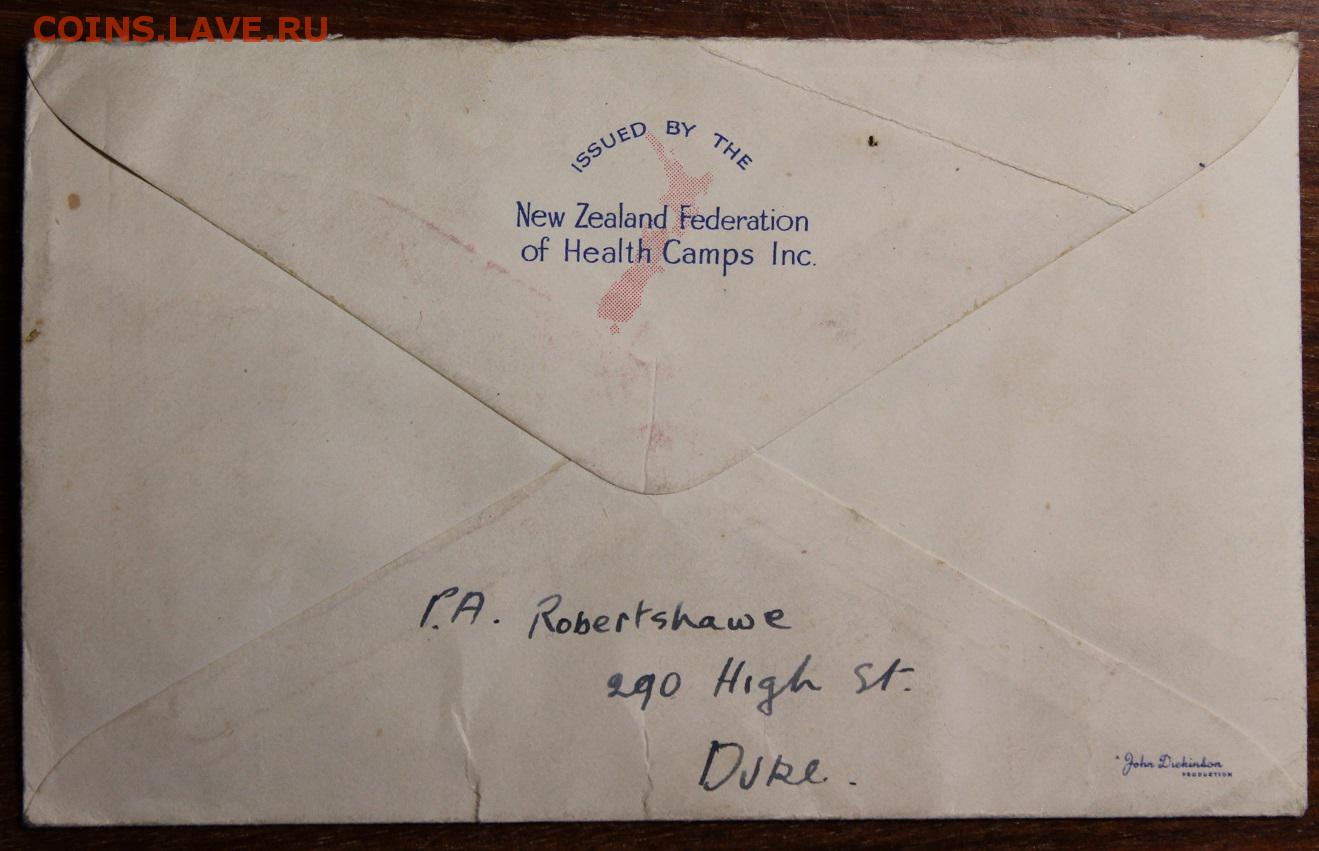 COINS.LAVE.RU
ISSUED BY THE
New Zealand Federation
of Health Camps Inc.
P.A. Robertshawe
290 High St.
D/ke.
A John Dickinson
PRODUCTION